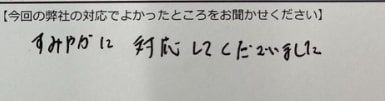 【今回の弊社の対応でよかったところをお聞かせください】
すみやかに 対応してくださいました